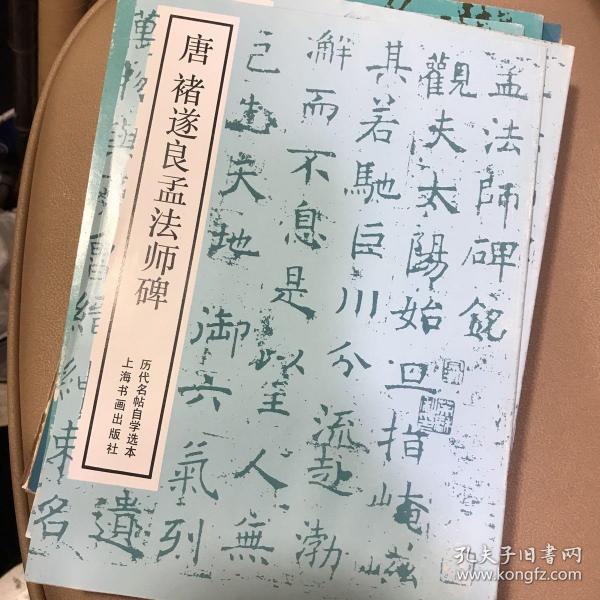 唐 褚遂良孟法师碑
历代名帖自学选本
上海书画出版社
孟法師碑銘
觀夫太陽始旦指崦嵫
其若馳巨川分流赴渤
澥而不息是以至人無
己天地御六氣列
萬物與遺
名
孔夫子旧书网
www.kongfz.com